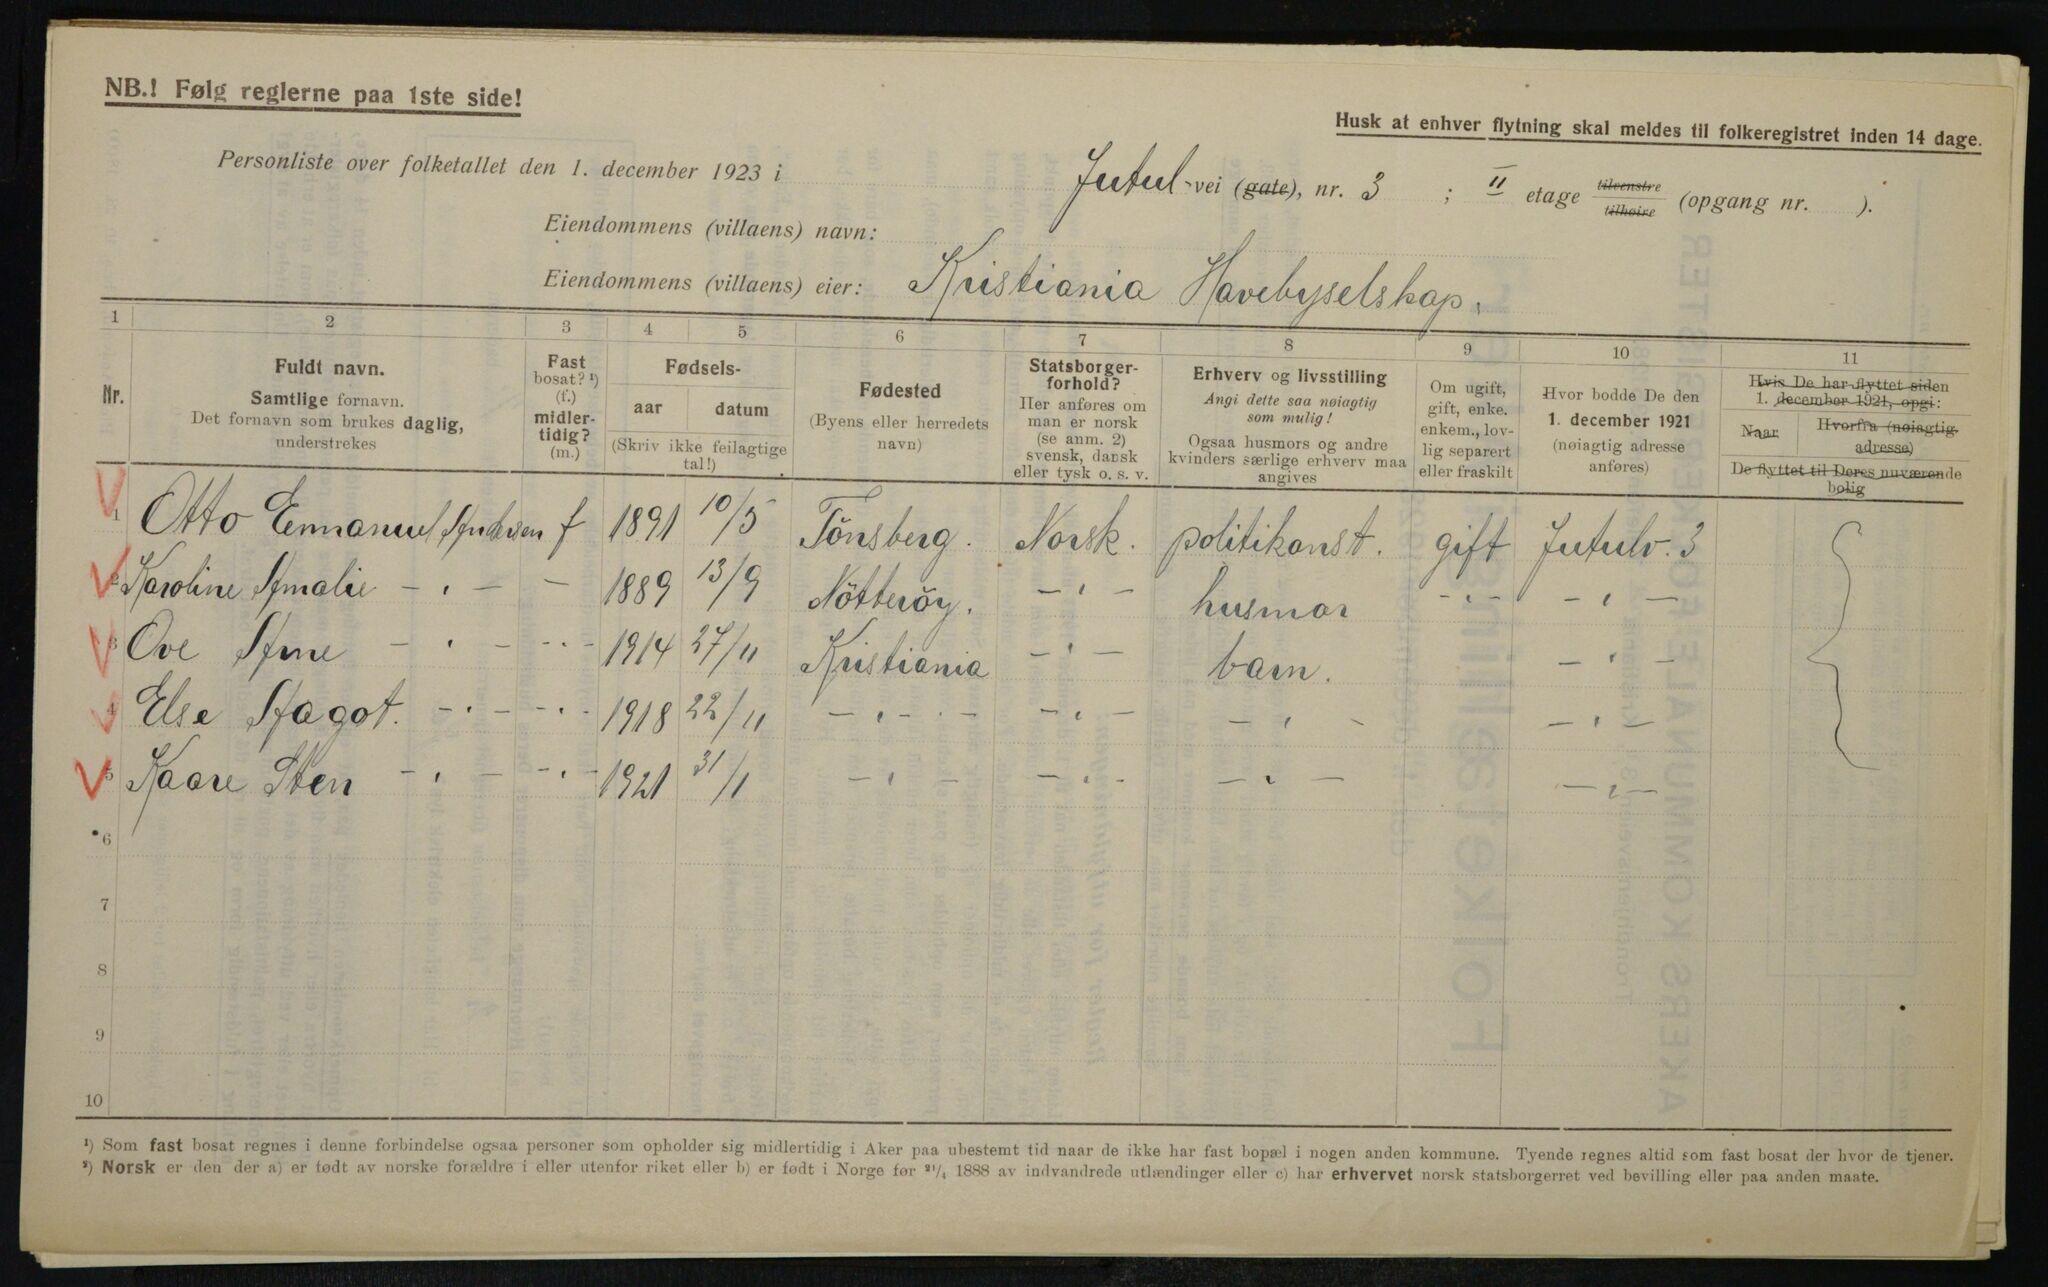 NB.! Følg reglerne paa 1ste side!
Husk at enhver flytning skal meldes til folkeregistret inden 14 dage.
Personliste over folketallet den 1. december 1923 i Jutul-vei (gate), nr. 3 ; II etage tilvenstre tilhøire (opgang nr. ).
Eiendommens (villaens) navn:
Eiendommens (villaens) eier: Kristiania Havebyselskap.
1 2 3 4 5 6 7 8 9 10 11
Nr.
Fuldt navn.
Samtlige fornavn.
Det fornavn som brukes daglig,
understrekes
Fast
bosat? ¹)
(f.)
midler-
tidig?
(m.)
Fødsels-
aar datum
(Skriv ikke feilagtige
tal!)
Fødested
(Byens eller herredets
navn)
Statsborger-
forhold?
Her anføres om
man er norsk
(se anm. 2)
svensk, dansk
eller tysk o. s. v.
Erhverv og livsstilling
Angi dette saa nøiagtig
som mulig!
Ogsaa husmors og andre
kvinders særlige erhverv maa
angives
Om ugift,
gift, enke.
enkem., lov-
lig separert
eller fraskilt
Hvor bodde De den
1. december 1921
(nøiagtig adresse
anføres)
Hvis De har flyttet siden
1. december 1921, opgi:
Naar Hvorfra (nøiagtig
adresse)
De flyttet til Deres nuværende
bolig
1 Otto Emmanuel Andersen f 1891 10/5 Tönsberg. Norsk. politikonst. gift Jutulv. 3
2 Karoline Amalie - " - - 1889 13/9 Nötteröy. - " - husmor - " - - " -
3 Ove Arne - " - - " - 1914 27/11 Kristiania - " - barn. - " -
4 Else Aagot. - " - - " - 1918 22/11 - " - - - " - - " - - " -
5 Kaare Sten - " - - " - 1921 31/1 - " - - " - - " - - " -
6
7
8
9
10
¹) Som fast bosat regnes i denne forbindelse ogsaa personer som opholder sig midlertidig i Aker paa ubestemt tid naar de ikke har fast bopæl i nogen anden kommune. Tyende regnes altid som fast bosat der hvor de tjener.
²) Norsk er den der a) er født av norske forældre i eller utenfor riket eller b) er født i Norge før ²¹/₄ 1888 av indvandrede utlændinger eller c) har erhvervet norsk statsborgerret ved bevilling eller paa anden maate.